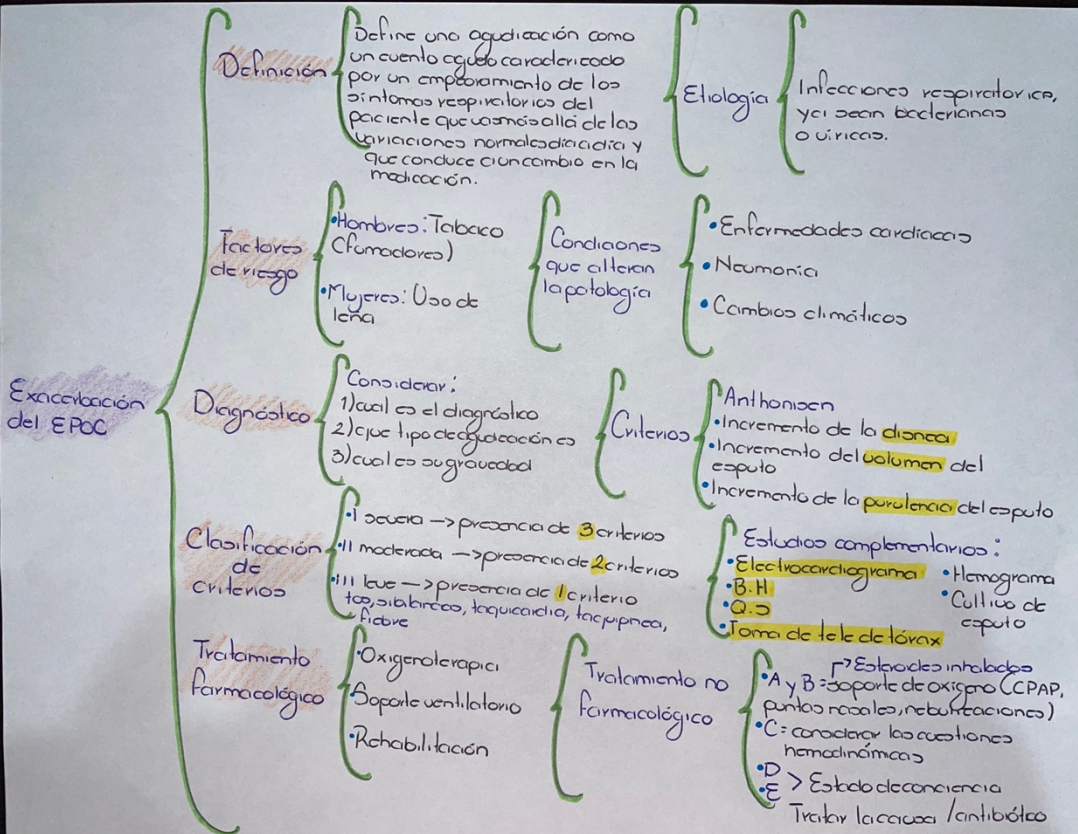 Exacerbación
del EPOC
Definición
Define una agudización como
un cuento agudo caracterizado
por un empeoramiento de los
síntomas respiratorios del
paciente que va más allá de las
variaciones normales día a día y
que conduce a un cambio en la
medicación.
Etiología
Infecciones respiratorias,
ya sean bacterianas
o víricas.
Factores
de riesgo
•Hombres: Tabaco
(fumadores)
•Mujeres: Uso de
leña
Condiciones
que alteran
la patología
•Enfermedades cardíacas
•Neumonía
•Cambios climáticos
Diagnóstico
Considerar:
1) cual es el diagnóstico
2) que tipo de agudización es
3) cual es su gravedad
Criterios
Anthonisen
•Incremento de la disnea
•Incremento del volumen del
esputo
•Incremento de la purulencia del esputo
Clasificación
de
criterios
•I severa —> presencia de 3 criterios
•II moderada —> presencia de 2 criterios
•III leve —> presencia de 1 criterio
tos, sibilancias, taquicardia, taquipnea,
fiebre
Estudios complementarios:
•Electrocardiograma
•B.H
•Q.S
•Toma de tele de tórax
•Hemograma
•Cultivo de
esputo
Tratamiento
farmacológico
•Oxigenoterapia
•Soporte ventilatorio
•Rehabilitación
Tratamiento no
farmacológico
Esteroides inhalados
•A y B = soporte de oxígeno (CPAP,
puntas nasales, nebulizaciones)
•C = considerar las cuestiones
hemodinámicas
•D
•E > Estado de conciencia
Tratar la causa / antibiótco